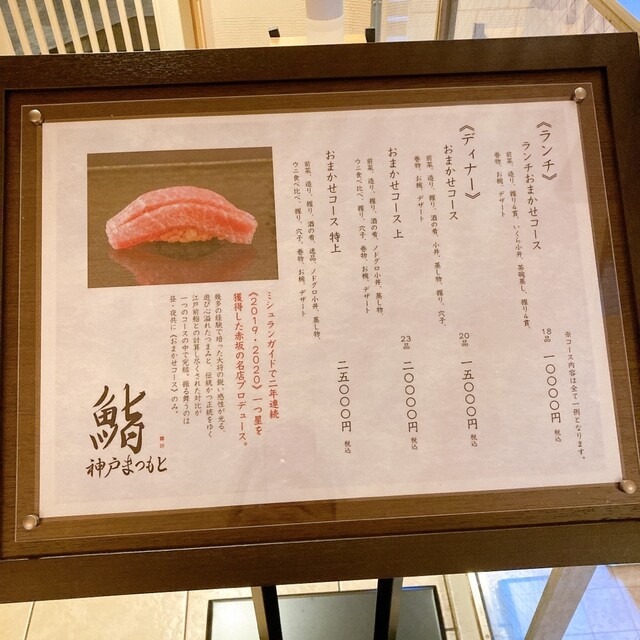 ※コース内容は全て一例となります。
《ランチ》
ランチおまかせコース
18品 一〇〇〇〇円 税込
前菜、造り、握り4貫、いくら小丼、茶碗蒸し、握り4貫、
巻物、お椀、デザート
《ディナー》
おまかせコース
20品 一五〇〇〇円 税込
前菜、造り、握り、酒の肴、小丼、蒸し物、握り、穴子、
巻物、お椀、デザート
おまかせコース 上
23品 二〇〇〇〇円 税込
前菜、造り、握り、酒の肴、ノドグロ小丼、蒸し物、
ウニ食べ比べ、握り、穴子、巻物、お椀、デザート
おまかせコース 特上
二五〇〇〇円 税込
前菜、造り、握り、酒の肴、逸品、ノドグロ小丼、蒸し物、
ウニ食べ比べ、握り、穴子、巻物、お椀、デザート
ミシュランガイドで二年連続
《2019・2020》一つ星を
獲得した赤坂の名店プロデュース。
幾多の経験で培った大将の鋭い感性が光る、
遊び心溢れたつまみと、伝統かつ正統をゆく
江戸前鮨との計算し尽くされた対比が
一つのコースの中で完結。振る舞うのは
昼・夜共に《おまかせコース》のみ。
鮨
神戸まつもと